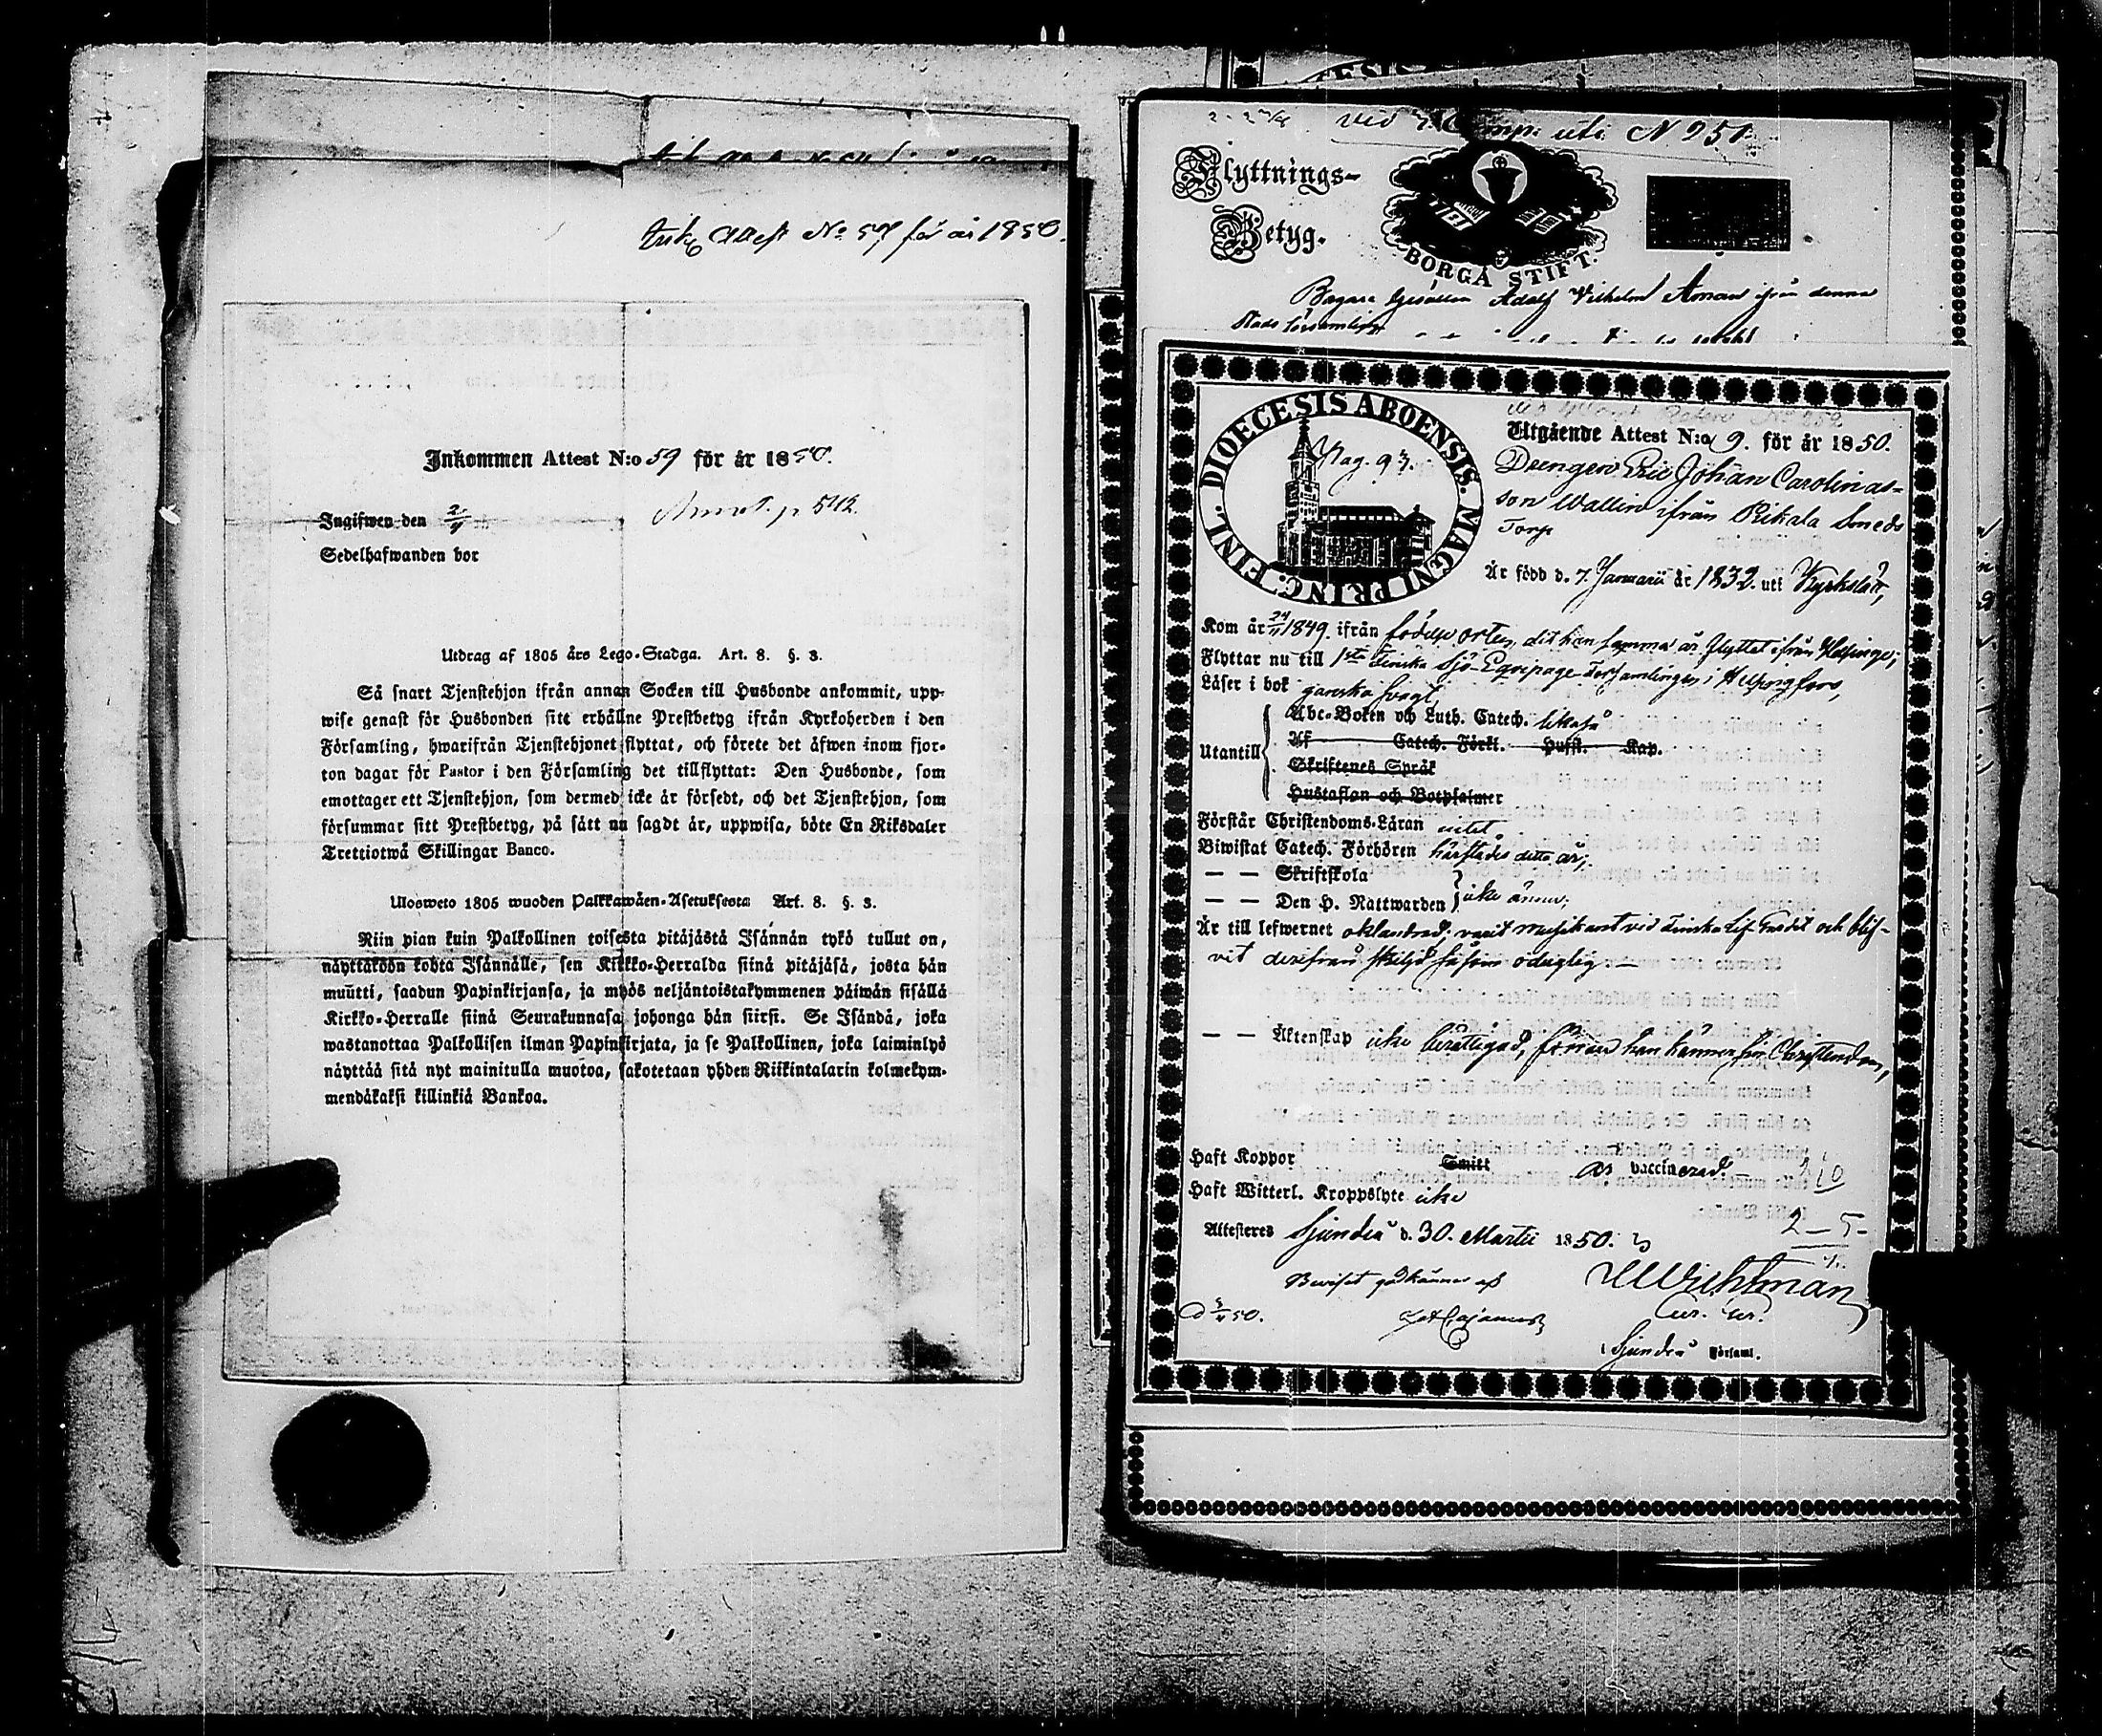 Attest No 57 för år 1850.
Inkommen Attest N:o 59 för år 1850.
Ingifwen den 2/4
Annot. p 542.
Sedelhafwanden bor
Utdrag af 1805 års Lego-Stadga. Art. 8. §. 3.
Så snart Tjenstehjon ifrån annan Socken till Husbonde ankommit, upp-
wise genast för Husbonden sitt erhållne Prestbetyg ifrån Kyrkoherden i den
Församling, hwarifrån Tjenstehjonet flyttat, och förete det äfwen inom fjor-
ton dagar för Pastor i den Församling det tillflyttat: Den Husbonde, som
emottager ett Tjenstehjon, som dermed icke är försedt, och det Tjenstehjon, som
försummar sitt Prestbetyg, på sätt nu sagdt är, uppwisa, böte En Riksdaler
Trettiotwå Skillingar Banco.
Ulosweto 1805 wuoden Palkkawäen-Asetuksesta Art. 8. §. 3.
Niin pian kuin Palkollinen toisesta pitäjästä Isännän tykö tullut on,
näyttäköön kohta Isännälle, sen Kirkko-Herralda siinä pitäjäsä, josta hän
muutti, saadun Papinkirjansa, ja myös neljäntoistakymmenen päiwän sisällä
Kirkko-Herralle siinä Seurakunnasa johonga hän siirsi. Se Isändä, joka
wastanottaa Palkollisen ilman Papinkirjata, ja se Palkollinen, joka laiminlyö
näyttää sitä nyt mainitulla muotoa, sakotetaan yhden Riikintalarin kolmekym-
mendäkaksi killinkiä Bankoa.
uti N 251
Flyttnings-
Betyg.
BORGÅ STIFT.
Bagare Gesällen Adolf Wilhelm Åman ifrån denna
Stads församling
FINL. DIOECESIS ABOENSIS. MAGNI PRINC.
Pag. 93.
Utgående Attest N:o 9. för år 1850.
Drengen Eric Johan Carolinas-
son Wallin ifrån Pikala Smeds
Torp
Är född d. 7. Januarii år 1832. uti Kyrkslätt,
Kom år 24/11 1849. ifrån födelse orten, dit han samma år flyttat ifrån Helsinge;
Flyttar nu till 1sta Finska Sjö-Equipage Församlingen i Helsingfors,
Läser i bok ganska svagt,
Abc-Boken och Luth. Catech. likaså
Utantill
Af Catech. Förkl. Hufst. Kap.
Skriftenes Språk
Hustaflan och Botpsalmer
Förstår Christendoms-Läran intet
Biwistat Catech. Förhören härstädes detta år;
— — Skriftskola
— — Den H. Nattwarden } icke ännu;
Är till lefwernet oklandrad; varit musikant vid Finska Lif Gardet och blif-
vit derifrån skiljd såsom oduglig. —
— — Äktenskap icke berättigad, förrän han känner sin Christendom,
Haft Koppor Smitt är vaccinerad. —
Haft Witterl. Kroppslyte icke
Attesteres Sjundeå d. 30. Martii 1850.
2 — 5 —
Beviset godkännes af
d 5/4 50.
Wichtman
Cur. Cur.
i Sjundeå Församl.